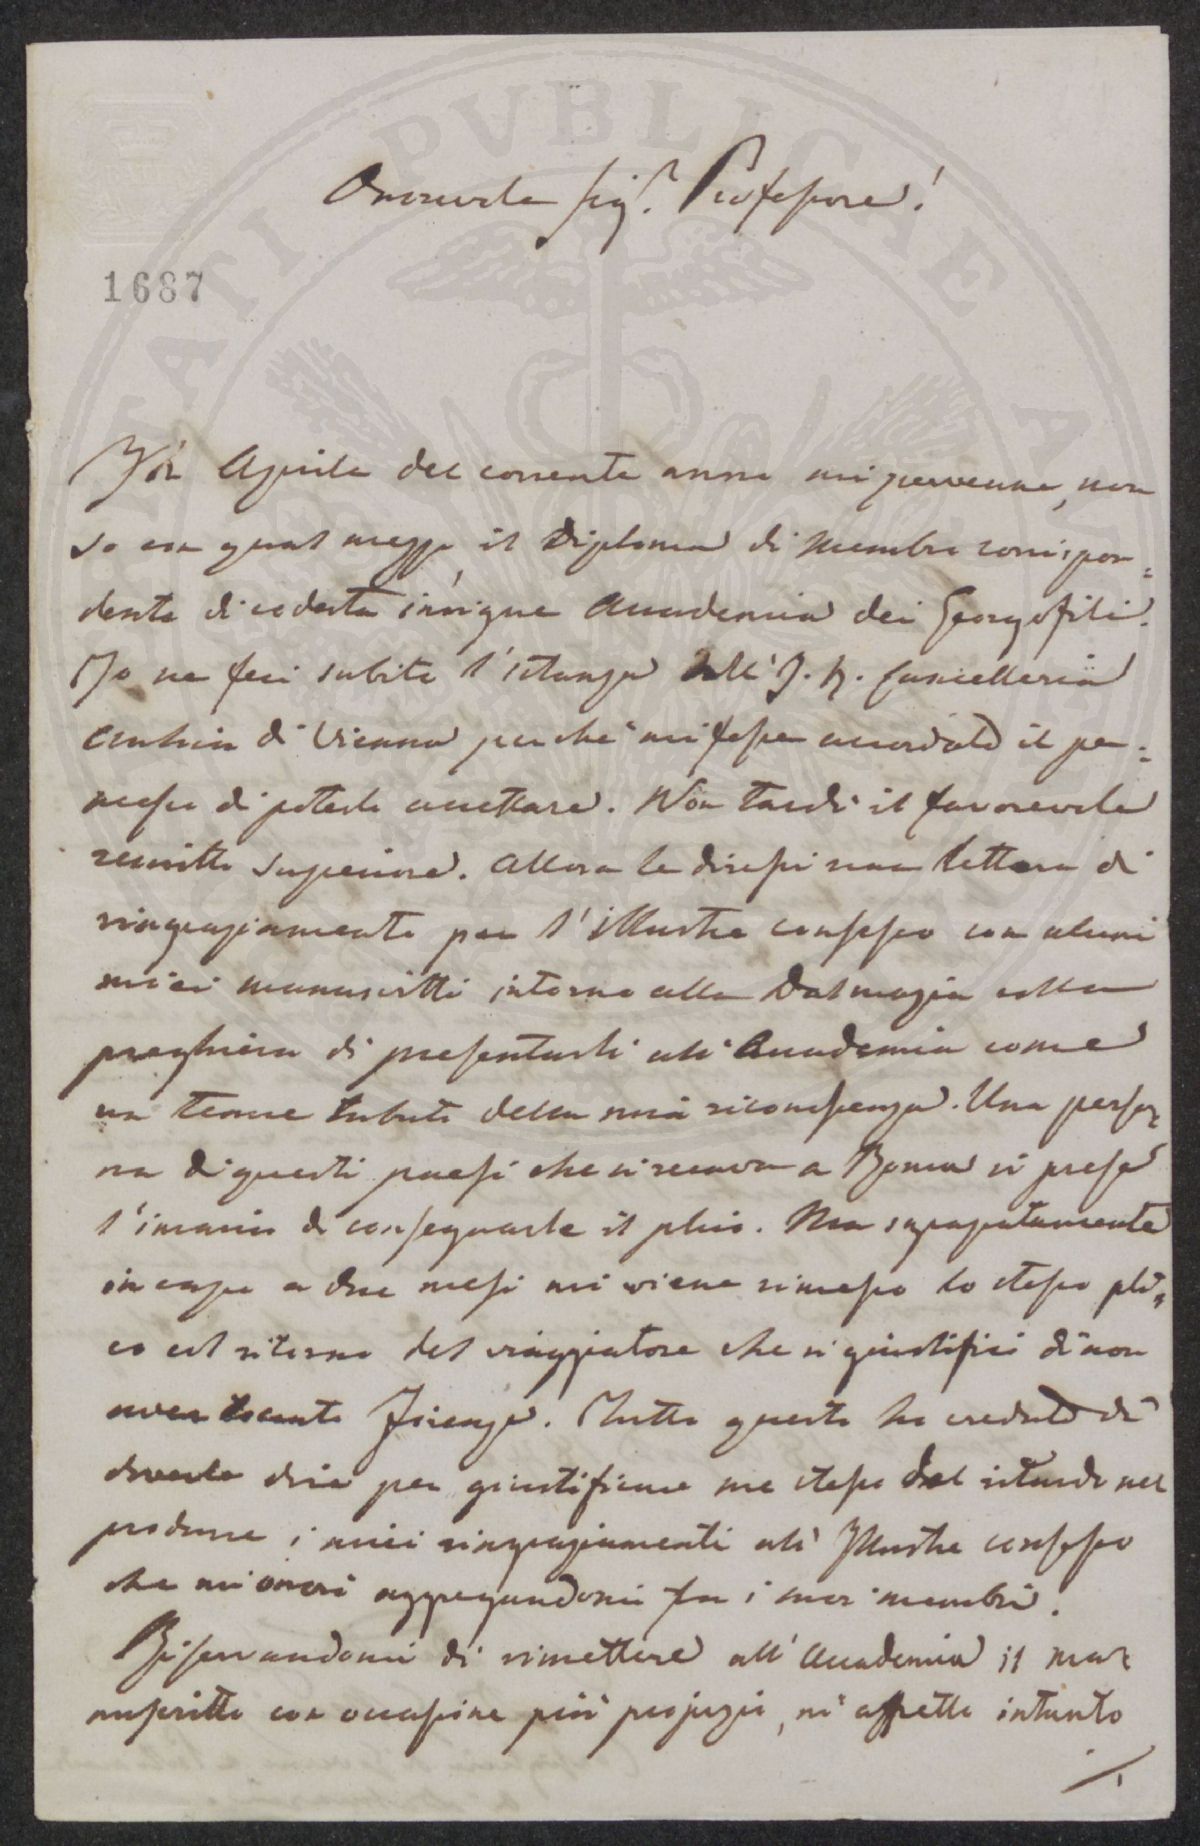 Onorevole Sigr. Professore!
1687
Nell' Aprile del corrente anno mi pervenne, non
so con qual mezzo il Diploma di Membro corrispon=
dente di codesta insigne Accademia dei Georgofili.
Io ne feci subito l'istanza all'I. R. Cancelleria
Aulica di Vienna perché mi fosse accordato il per=
messo di poterlo accettare. Non tardò il favorevole
rescritto superiore. Allora le diressi una lettera di
ringraziamento per l'illustre consesso con alcuni
miei manuscritti intorno alla Dalmazia colla
preghiera di presentarli all'Accademia come
un tenue tributo della mia riconoscenza. Una perso=
na di questi paesi che si recava a Roma si prese
l'incarico di consegnarle il plico. Ma inaspettatamente
in capo a due mesi mi viene rimesso lo stesso pli=
co col ritorno del viaggiatore che si giustificò di non
aver toccato Firenze. Tutto questo ho creduto di
doverle dire per giustificare me stesso del ritardo nel
produrre i miei ringraziamenti all'Illustre consesso
che mi onorò aggregandomi fra i suoi membri.
Riservandomi di rimettere all'Accademia il ma=
nuscritto con occasione più propizia, mi affretto intanto
./.
PVBLICAE